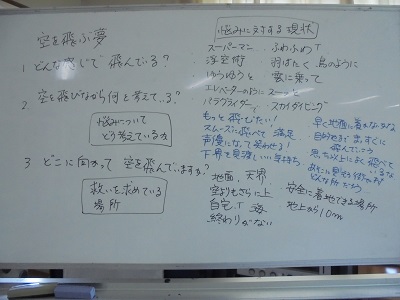 空を飛ぶ夢
1 どんな感じで 飛んでいる?
2 空を飛びながら何と考えている?
悩みについて
どう考えているか
3 どこに向かって 空を飛んでいますか?
救いを求めている
場所
悩みに対する 現状
スーパーマン ふわふわ
浮空術 羽ばたく 鳥のように
ゆうゆうと 雲に乗って
エレベーターのように スーッと
パラグライダー スカイダイビング
もっと飛びたい!
スムーズに飛べて 満足
声優になって 笑わせよ!
下界を見渡しいい気持ち
早く地面に着きたいな
目的地まで まっすぐに
飛んでいこう
思った以上によく飛べて
いるな
あそこに見える街って
どんな所だろう
地面、天界
空よりもさらに上
自宅、 海
終わりがない
安全に着地できる場所
地上から10m